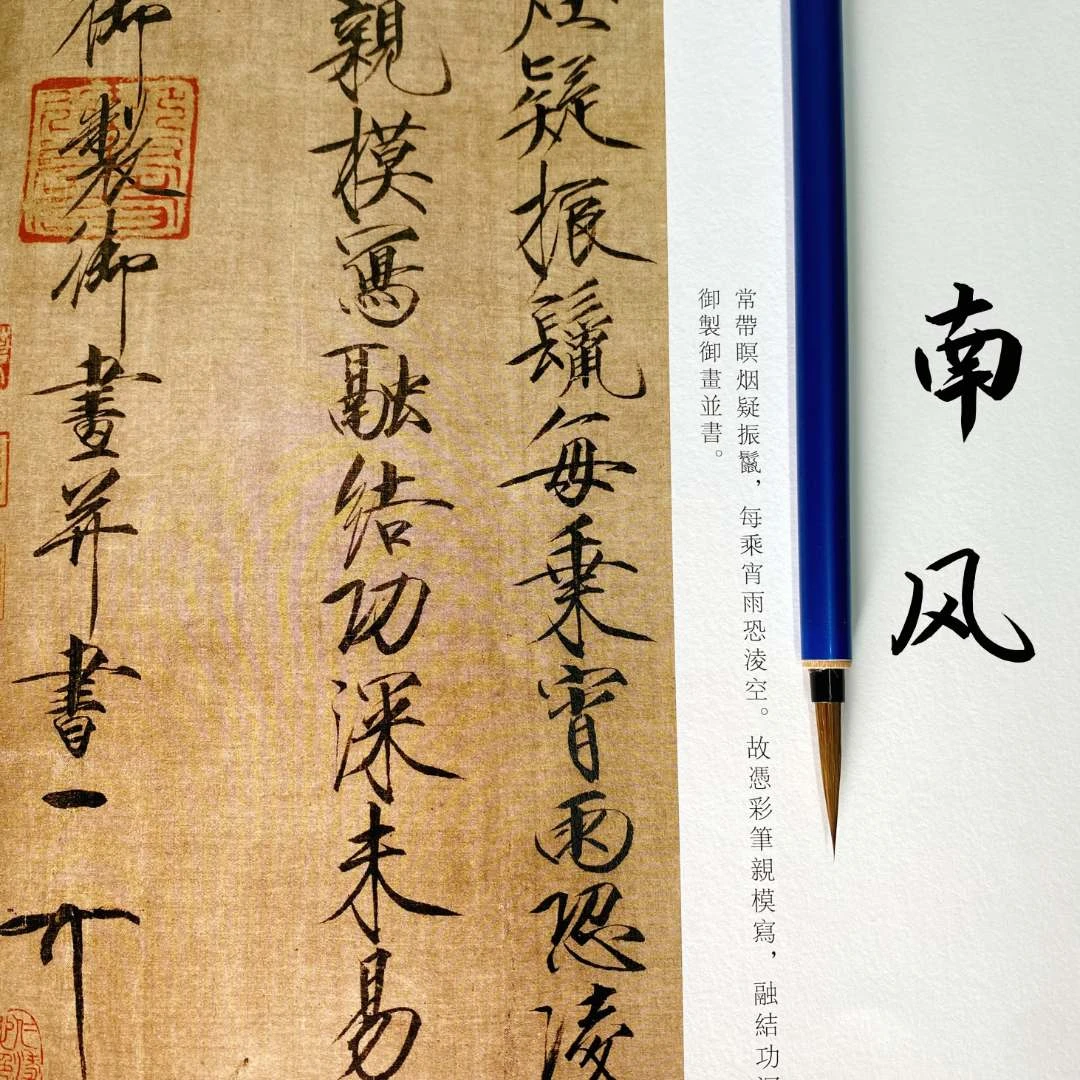 南风
常帶瞑烟疑振鬣，每乘宵雨恐淩空。故憑彩筆親模寫，融結功
御製御畫並書。
疑振鬣每乘宵雨恐淩
親模寫融結功深未易
御製御畫并書